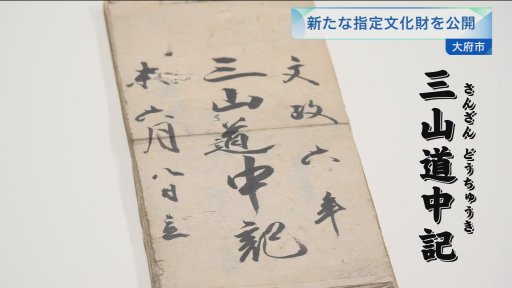 新たな指定文化財を公開
大府市
三山道中記
さんざん どうちゅうき
文政六年
三山道中記
六月八日立